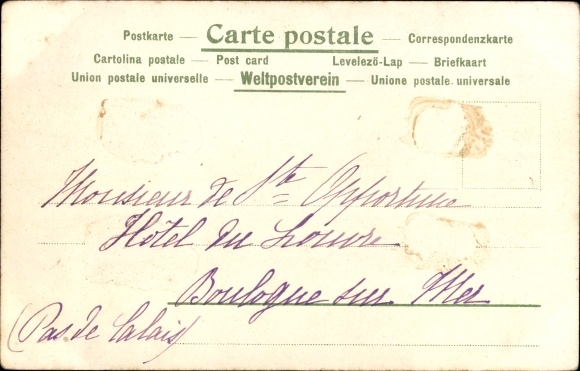 Postkarte — Carte postale — Correspondenzkarte
Cartolina postale — Post card Levelező-Lap — Briefkaart
Union postale universelle — Weltpostverein — Unione postale universale
Monsieur de Ste Opportune
Hôtel du Louvre
Boulogne sur Mer
(Pas de Calais)